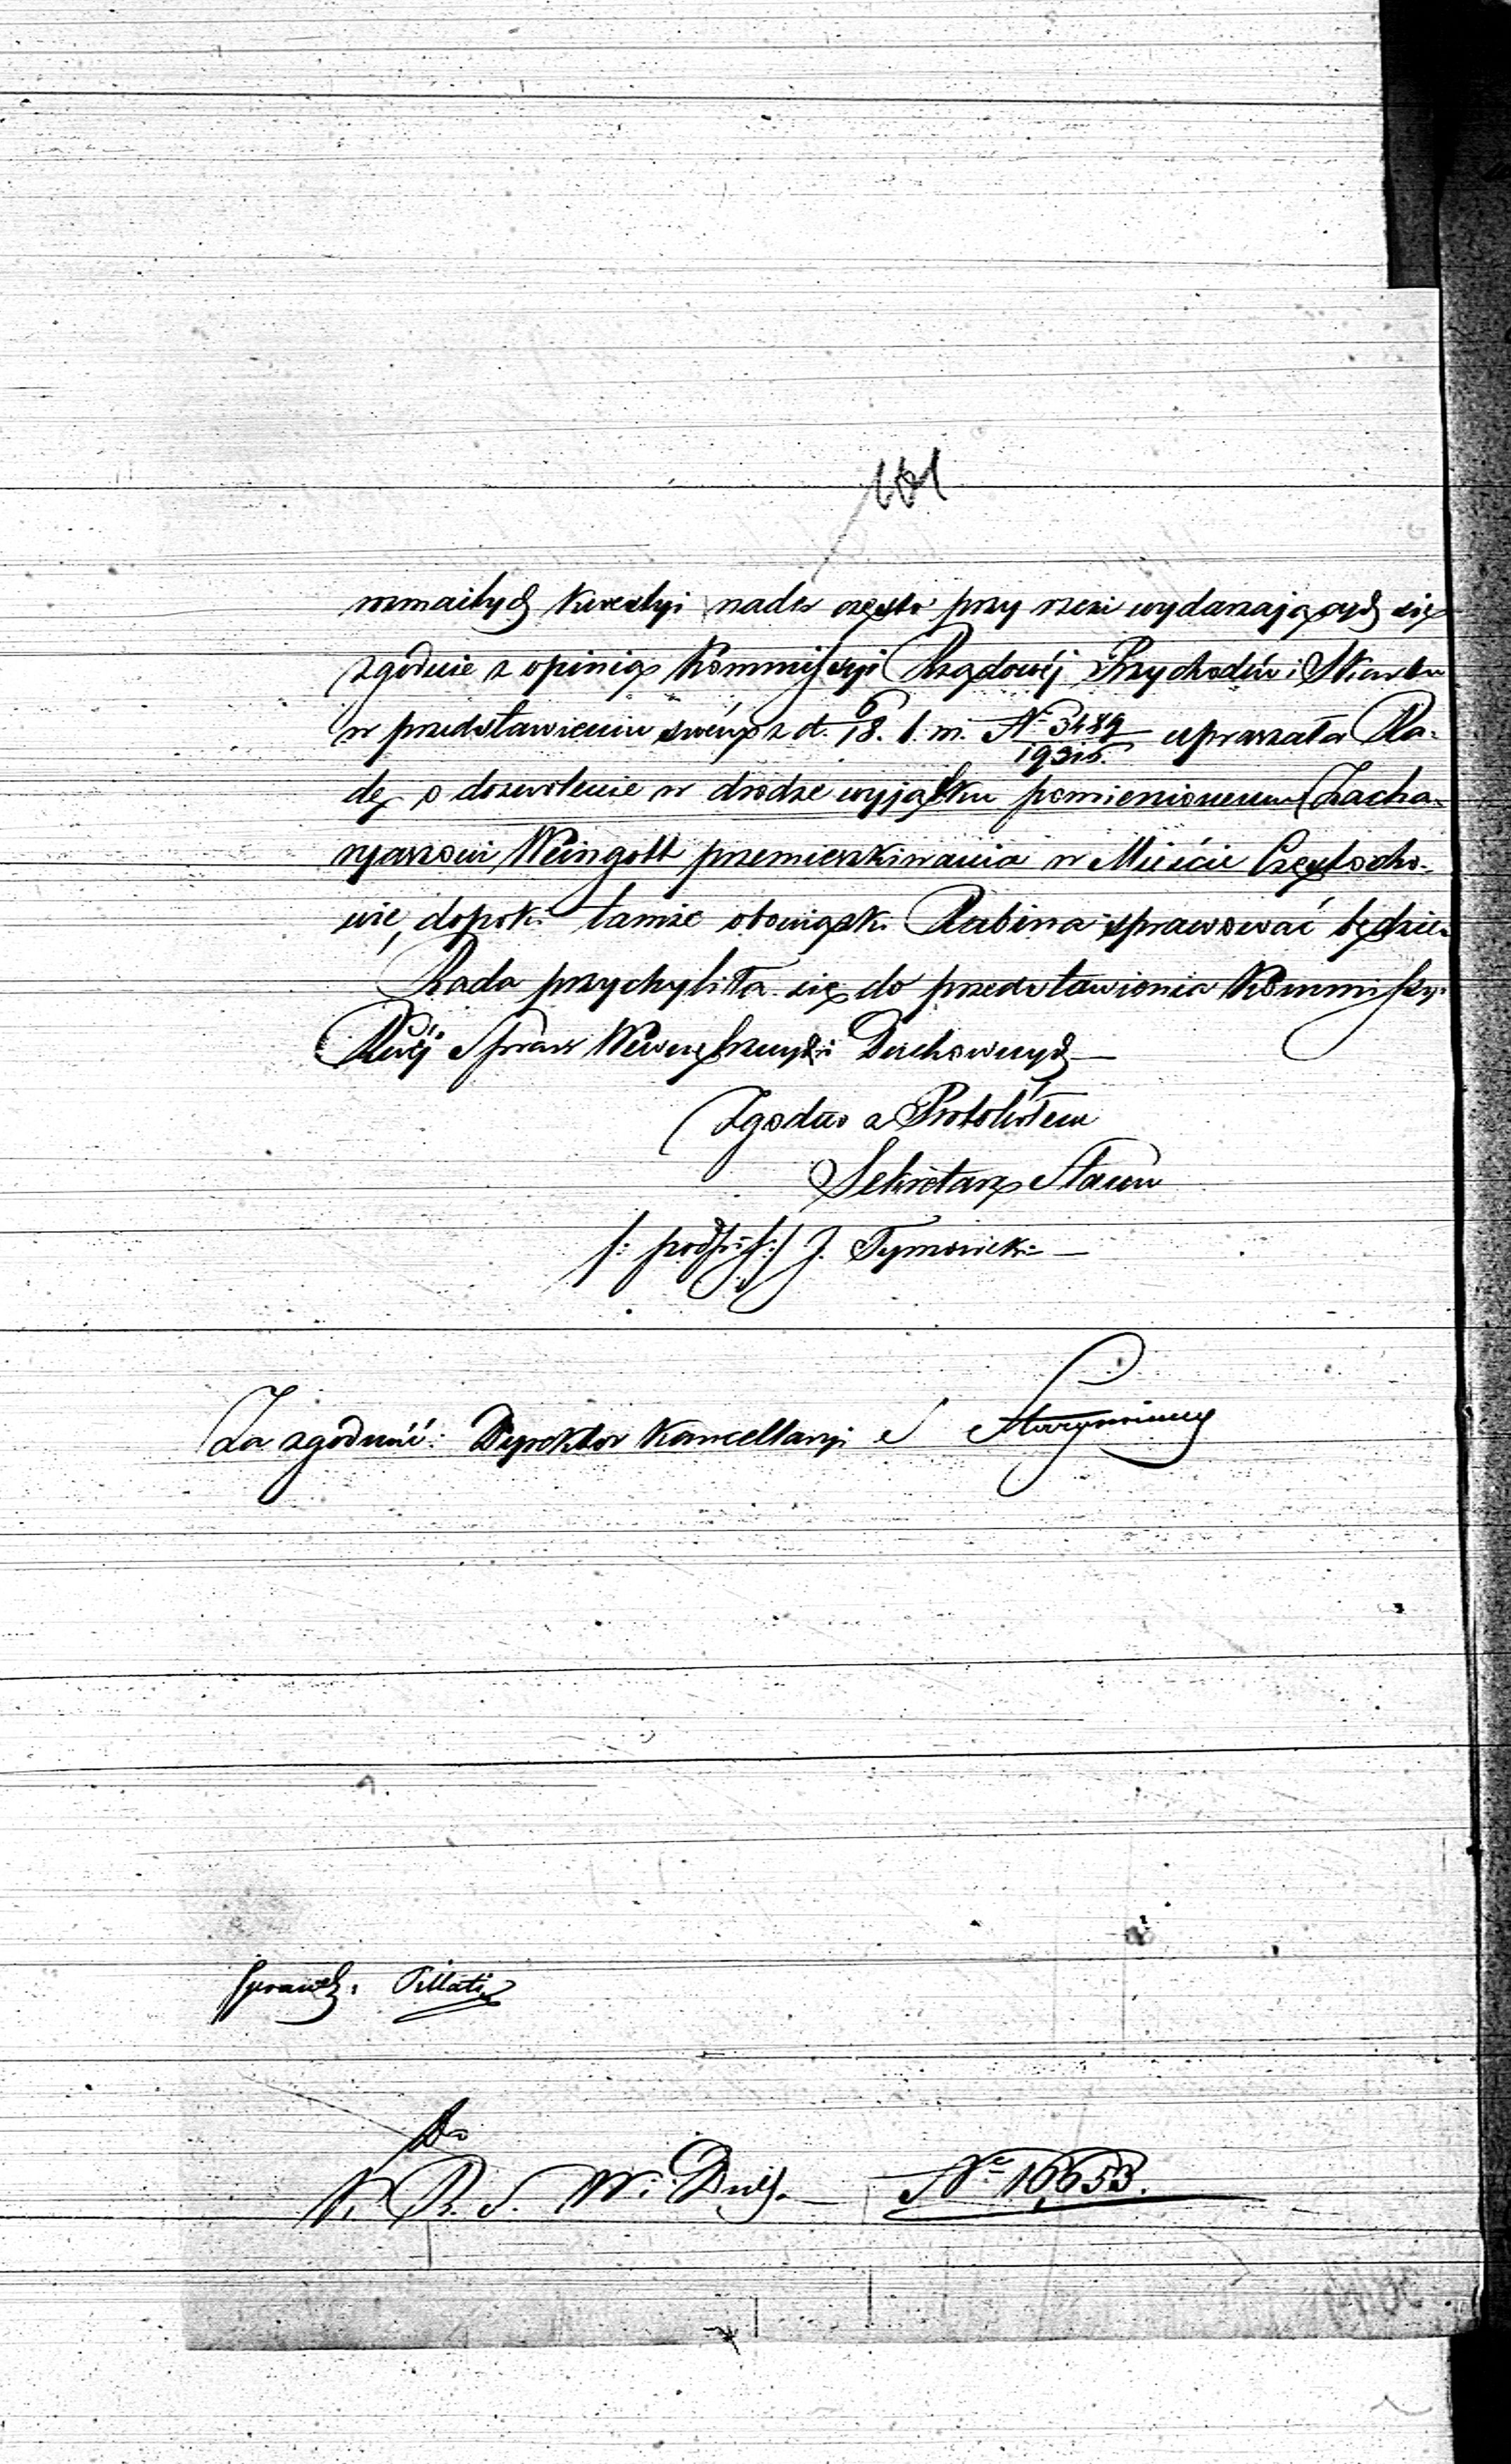 181
rozmaitych kwestyi nader często przy rzezi wydarzających się
zgodnie z opinią Kommissyi Rządowéj Przychodów i Skarbu
w przedstawieniu swém z d. 6/18. b. m. N 3489/19315. upraszała Ra-
dę o dozwolenie w drodze wyjątku pomienionemu Zacha-
ryaszowi Weingott przemieszkiwania w Mieście Częstocho-
wie, dopoki tamże obowiązki Rabina sprawować będzie.
Rada przychyliła się do przedstawienia Kommissyi
Rwéj Spraw Wewnętrznych i Duchownych —
Zgodno z Protokółem
Sekretarz Stanu
/: podpis:/ J. Tymowski —
Za zgodność: Dyrektor Kancellaryi
Sprawdz: Pillati
Do
K. R. S. W. i Duch. — No 16653.